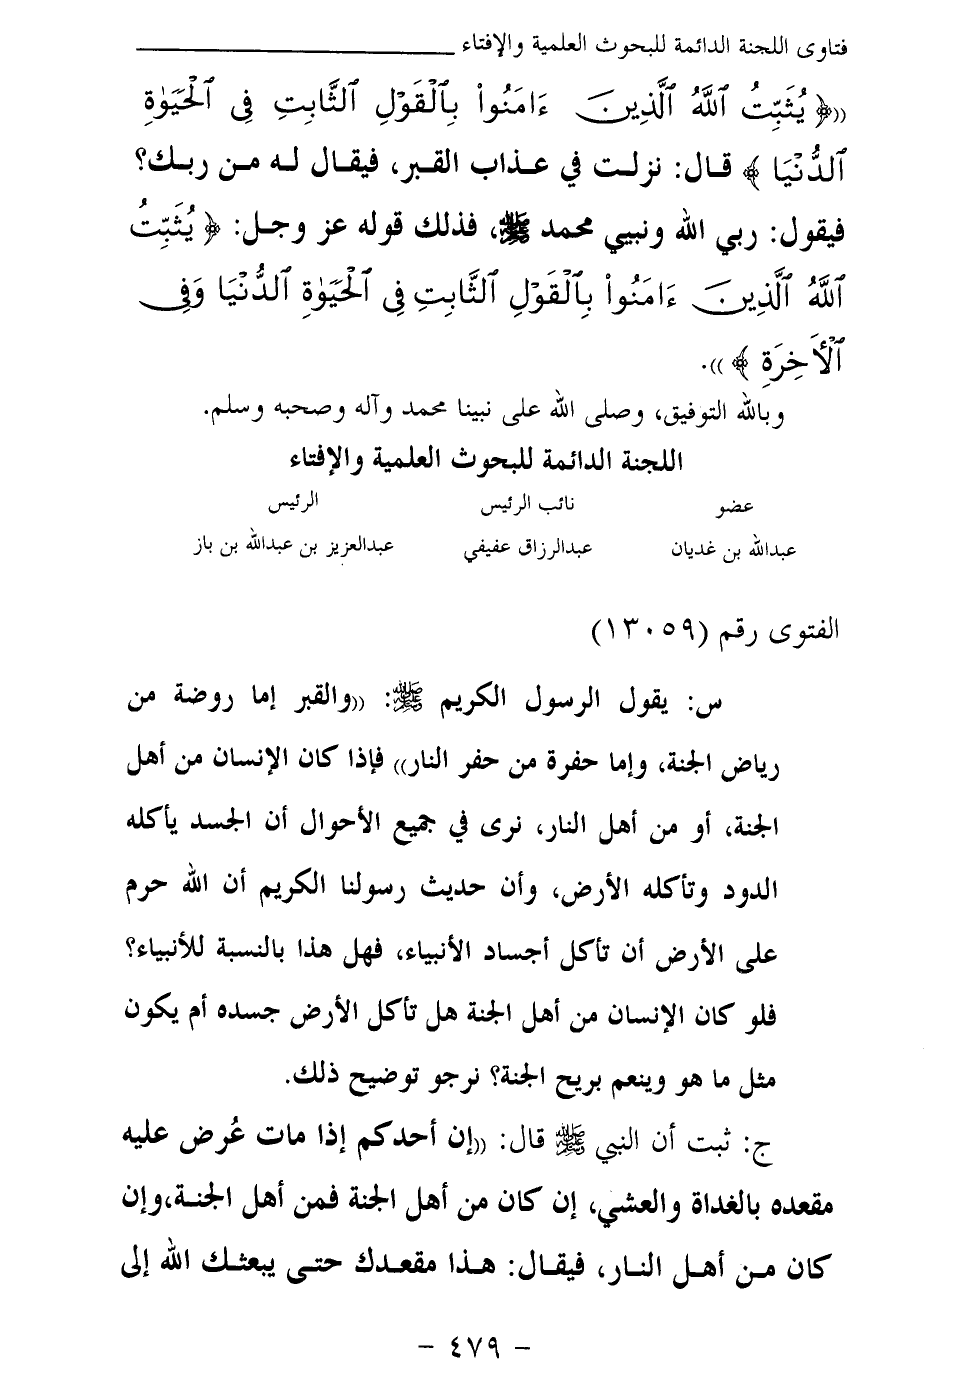 فتاوى اللجنة الدائمة للبحوث العلمية والإفتاء
((﴿ يُثَبِّتُ ٱللَّهُ ٱلَّذِينَ ءَامَنُوا۟ بِٱلْقَوْلِ ٱلثَّابِتِ فِى ٱلْحَيَوٰةِ
ٱلدُّنْيَا ﴾ قـال: نزلـت في عـذاب القـبر، فيقـال لـه مـن ربـك؟
فيقول: ربي الله ونبيي محمد ﷺ، فذلك قوله عز وجـل: ﴿ يُثَبِّتُ
ٱللَّهُ ٱلَّذِينَ ءَامَنُوا۟ بِٱلْقَوْلِ ٱلثَّابِتِ فِى ٱلْحَيَوٰةِ ٱلدُّنْيَا وَفِى
ٱلْأَخِرَةِ ﴾)).
وبالله التوفيق، وصلى الله على نبينا محمد وآله وصحبه وسلم.
اللجنة الدائمة للبحوث العلمية والإفتاء
عضو نائب الرئيس الرئيس
عبدالله بن غديان عبدالرزاق عفيفي عبدالعزيز بن عبدالله بن باز
الفتوى رقم (١٣٠٥٩)
س: يقول الرسول الكريم ﷺ: ((والقبر إما روضة من
رياض الجنة، وإما حفرة من حفر النار)) فإذا كان الإنسان من أهل
الجنة، أو من أهل النار، نرى في جميع الأحوال أن الجسد يأكله
الدود وتأكله الأرض، وأن حديث رسولنا الكريم أن الله حرم
على الأرض أن تأكل أجساد الأنبياء، فهل هذا بالنسبة للأنبياء؟
فلو كان الإنسان من أهل الجنة هل تأكل الأرض جسده أم يكون
مثل ما هو وينعم بريح الجنة؟ نرجو توضيح ذلك.
ج: ثبت أن النبي ﷺ قال: ((إن أحدكم إذا مات عُرض عليه
مقعده بالغداة والعشي، إن كان من أهل الجنة فمن أهل الجنـة،وإن
كان مـن أهـل النـار، فيقـال: هـذا مقعـدك حتـى يبعثـك الله إلى
- ٤٧٩ -